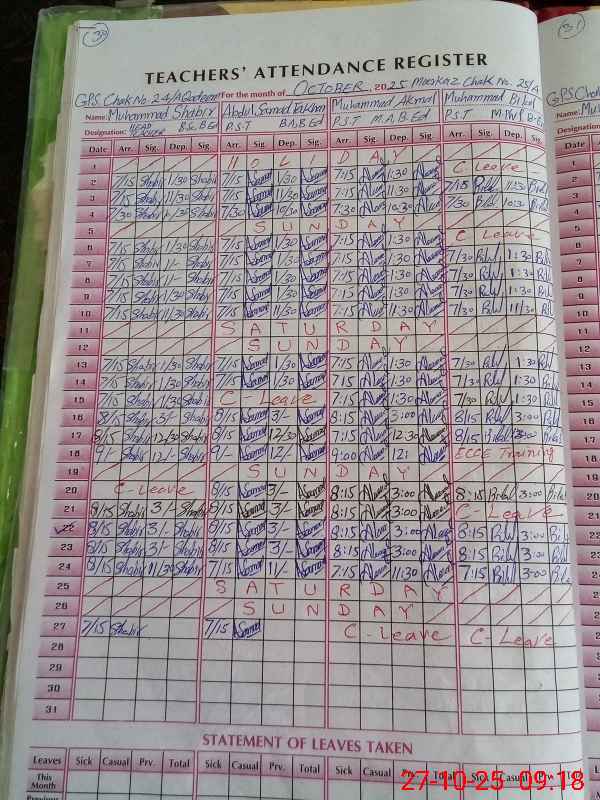 39
31
TEACHERS' ATTENDANCE REGISTER
GPS Chak No. 24/A Qadeem For the month of OCTOBER 2025 Markaz Chak No. 25/A
Name: Muhammad Shabir Abdul Samad Muhammad Akmal Muhammad Bilal
Designation: HEAD TEACHER B.Sc, B.Ed P.S.T B.A, B.Ed P.S.T M.A, B.Ed P.S.T
Date Arr. Sig. Dep. Sig. Arr. Sig. Dep. Sig. Arr. Sig. Dep. Sig. Arr. Sig. Dep. Sig.
1 HOLIDAY
2 7/15 Shabir 1/30 Shabir 7/15 Samad 1/30 Samad 7:15 1:30 C Leave
3 7/15 Shabir 11/30 Shabir 7/15 Samad 11/30 Samad 7:15 11:30 7/15 Bilal 11:30 Bilal
4 7/30 Shabir Shabir 7/30 Samad 10/30 Samad 7:30 10:30 7/30 Bilal 10:30 Bilal
5 SUNDAY
6 7/15 Shabir 1/30 Shabir 7/15 Samad 1/30 Samad 7:15 1:30 C Leave
7 7/15 Shabir 1/30 Shabir 7/15 Samad 1/30 Samad 7:15 1:30 7/30 Bilal 1:30 Bilal
8 7/15 Shabir 1/- Shabir 7/15 Samad 1/30 Samad 7:15 1:30 7/30 Bilal 1:30 Bilal
9 7/15 Shabir 1/30 Shabir 7/15 Samad 1/30 Samad 7:15 1:30 7/30 Bilal 1:30 Bilal
10 7/15 Shabir 11/30 Shabir 7/15 Samad 11/30 Samad 7:15 1:30 7/30 Bilal 11/30 Bilal
11 SATURDAY
12 SUNDAY
13 7/15 Shabir 1/30 Shabir 7/15 Samad 1/30 Samad 7:15 1:30 7/30 Bilal 1:30 Bilal
14 7/15 Shabir 1/30 Shabir 7/15 Samad 1/30 Samad 7:15 1:30 7/30 Bilal 1:30 Bilal
15 7/15 Shabir 1/30 Shabir C-Leave 7:15 1:30 7/30 Bilal 1:30 Bilal
16 8/15 Shabir 3/- Shabir 8/15 Samad 3/- Samad 8:15 3:00 8/15 Bilal 3:00 Bilal
17 8/15 Shabir 12/30 Shabir 8/15 Samad 12/30 Samad 7:15 12:30 8/15 Bilal Bilal
18 9/- Shabir 12/- Shabir 9/- Samad 12/- Samad 9:00 12: ECCE Training
19 SUNDAY
20 C-Leave 8/15 Samad 3/- Samad 8:15 3:00 8:15 Bilal 3:00 Bilal
21 8/15 Shabir 3/- Shabir 8/15 Samad 3/- Samad 8:15 3:00 C-Leave
22 8/15 Shabir 3/- Shabir 8/15 Samad 3/- Samad 8:15 3:00 8:15 Bilal 3:00 Bilal
23 8/15 Shabir 3/- Shabir 8/15 Samad 3/- Samad 8:15 3:00 8:15 Bilal 3:00 Bilal
24 8/15 Shabir 11/30 Shabir 7/15 Samad 11/- Samad 7:15 11:30 7:15 Bilal 3:00 Bilal
25 SATURDAY
26 SUNDAY
27 7/15 Shabir 7/15 Samad C-leave C-Leave
28
29
30
31
STATEMENT OF LEAVES TAKEN
Leaves Sick Casual Prv. Total Sick Casual Prv. Total Sick Casual Prv. Total Sick Casual Prv. Total
This Month
Previous
27-10-25 09:18